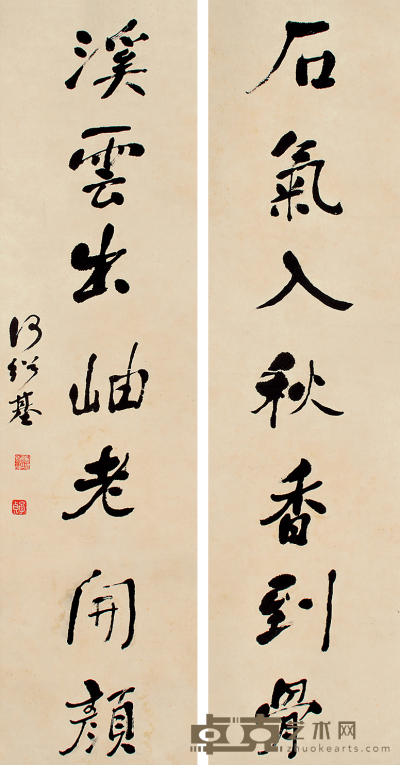 石氣入秋香到骨
溪雲出岫老開顏
何紹基
卓克艺术网
zhuokearts.com